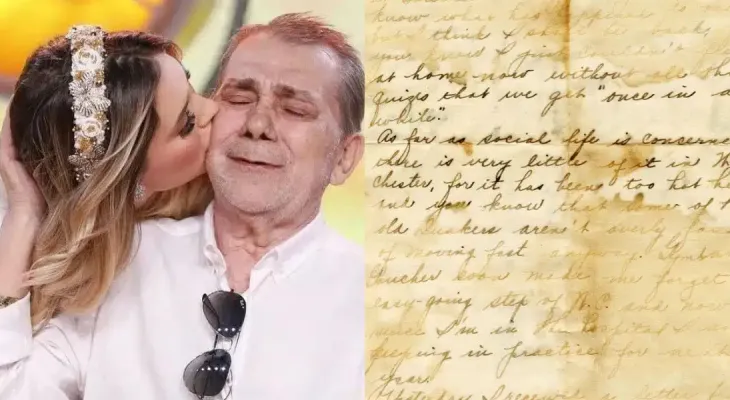 know what has
think I
you know I just couldn't
at home now without all the
quizes that we get "once in a
while".
As far as social life is concerne
there is very little of it in W
chester, for it has been too hot he
and you know that some of t
old Quakers aren't overly
of moving fast anyway.
soon made me forget
easy-going step of W.C. and now
since I'm in the hospital I
keeping in practice for
years
Yesterday I received a letter